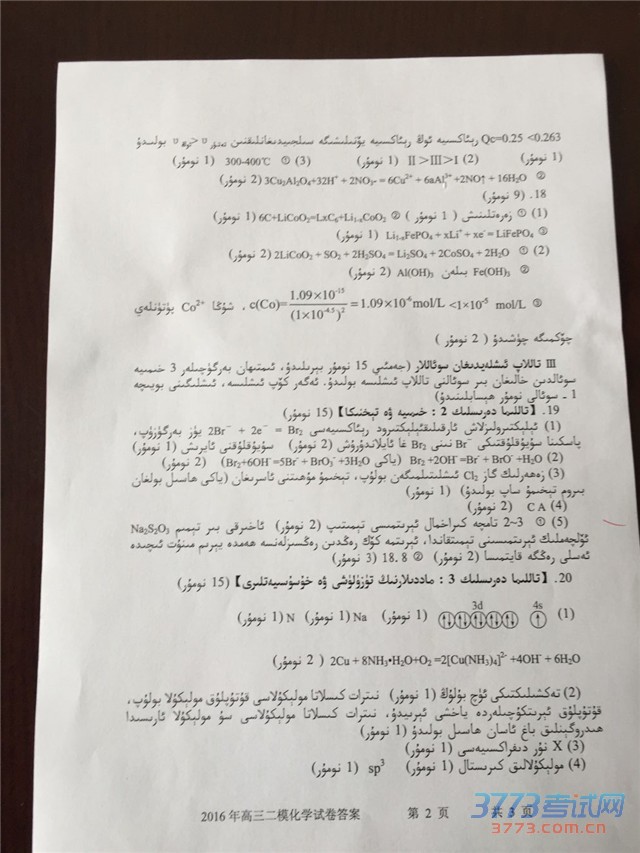 Qc=0.25 <0.263 رېئاكسىيە ئوڭ رېئاكسىيە يۆنىلىشىگە سىلجىيدىغانلىقتىن υ تەتۈر<υ ئوڭ بولىدۇ
(1 نومۇر) (2) Ⅱ＞Ⅲ＞Ⅰ (1 نومۇر) (3) ① 300-400℃ (1 نومۇر)
② 3Cu2Al2O4+32H+ + 2NO3- = 6Cu2+ + 6aAl3+ +2NO↑ + 16H2O (2 نومۇر)
18. (9 نومۇر)
(1) ① زەرەتلىنىش ( 1 نومۇر ) ② 6C+LiCoO2=LxC6+Li1-xCoO2 (1 نومۇر)
③ Li1-xFePO4 + xLi+ + xe-= LiFePO4 (1 نومۇر)
(2) ① 2LiCoO2 + SO2 + 2H2SO4 = Li2SO4 + 2CoSO4 + 2H2O (2 نومۇر)
② Fe(OH)3 بىلەن Al(OH)3 (2 نومۇر)
③ c(Co)=1.09×10-15/(1×10-4.5)2=1.09×10-6mol/L <1×10-5 mol/L ، شۇڭا Co2+ پۈتۈنلەي
چۆكمىگە چۈشىدۇ ( 2 نومۇر )
Ⅲ تاللاپ ئىشلەيدىغان سوئاللار (جەمئىي 15 نومۇر بېرىلىدۇ، ئىمتىھان بەرگۈچىلەر 3 خىمىيە
سوئالدىن خالىغان بىر سوئالنى تاللاپ ئىشلىسە بولىدۇ. ئەگەر كۆپ ئىشلىسە، ئىشلىگىنى بويىچە
1 ـ سوئالى نومۇر ھېسابلىنىدۇ)
19. 【تاللىما دەرسلىك 2 : خىمىيە ۋە تېخنىكا】 (15 نومۇر)
(1) ئېلېكترولىزلاش ئارقىلىق رېئاكسىيەسى 2Br- + 2e- = Br2 يۈز بەرگۈزۈپ،
پاسكىنا سۇيۇقلۇقتىكى Br- نىنى Br2 غا ئايلاندۇرۇش (2 نومۇر) سۇيۇقلۇقنى ئايرىش (1 نومۇر)
(2) Br2 +2OH-=Br-+ BrO- +H2O (ياكى Br2+6OH-=5Br-+ BrO3- +3H2O) (2 نومۇر)
(3) زەھەرلىك گاز Cl2 ئىشلىتىلمىگەن بولۇپ، تېخىمۇ مۇھىتنى ئاسرىغان (ياكى ھاسىل بولغان
بىروم تېخىمۇ ساپ بولىدۇ) (1 نومۇر)
(4) C A (2 نومۇر)
(5) ① 2~3 تامچە كىراخمال ئېرىتمىسى تېمىتىپ (2 نومۇر) ئاخىرقى بىر تېمىم Na2S2O3
ئۆلچەملىك ئېرىتمىسىنى تېمىتقاندا، ئېرىتمە كۆك رەڭدىن رەڭسىزلەنسە ھەمدە يېرىم مىنۇت ئىچىدە
ئەسلى رەڭگە قايتمىسا (2 نومۇر) ② 18.8 (3 نومۇر)
20. 【تاللىما دەرسلىك 3 : ماددىلارنىڭ تۈزۈلۈشى ۋە خۇسۇسىيەتلىرى】 (15 نومۇر)
3d 4s
(1) (1 نومۇر) Na (1 نومۇر) N (1 نومۇر)
2Cu + 8NH3•H2O+O2 =2[Cu(NH3)4]2- +4OH-+ 6H2O ( 2 نومۇر)
(2) تەكشىلىكتىكى ئۈچ بۇلۇڭ (1 نومۇر) نىترات كىسلاتا مولېكۇلاسى قۇتۇپلۇق مولېكۇلا بولۇپ،
قۇتۇپلۇق ئېرىتكۈچىلەردە ياخشى ئېرىيدۇ، نىترات كىسلاتا مولېكۇلاسى سۇ مولېكۇلا ئارىسىدا
ھىدروگېنلىق باغ ئاسان ھاسىل بولىدۇ (1 نومۇر)
(3) X نۇر دىفراكسىيەسى (1 نومۇر)
(4) مولېكۇلالىق كىرىستال (1 نومۇر) sp3 (1 نومۇر)
2016 年高三二模化学试卷答案 第 2 页 共 3 页
3773考试网
3773.com.cn